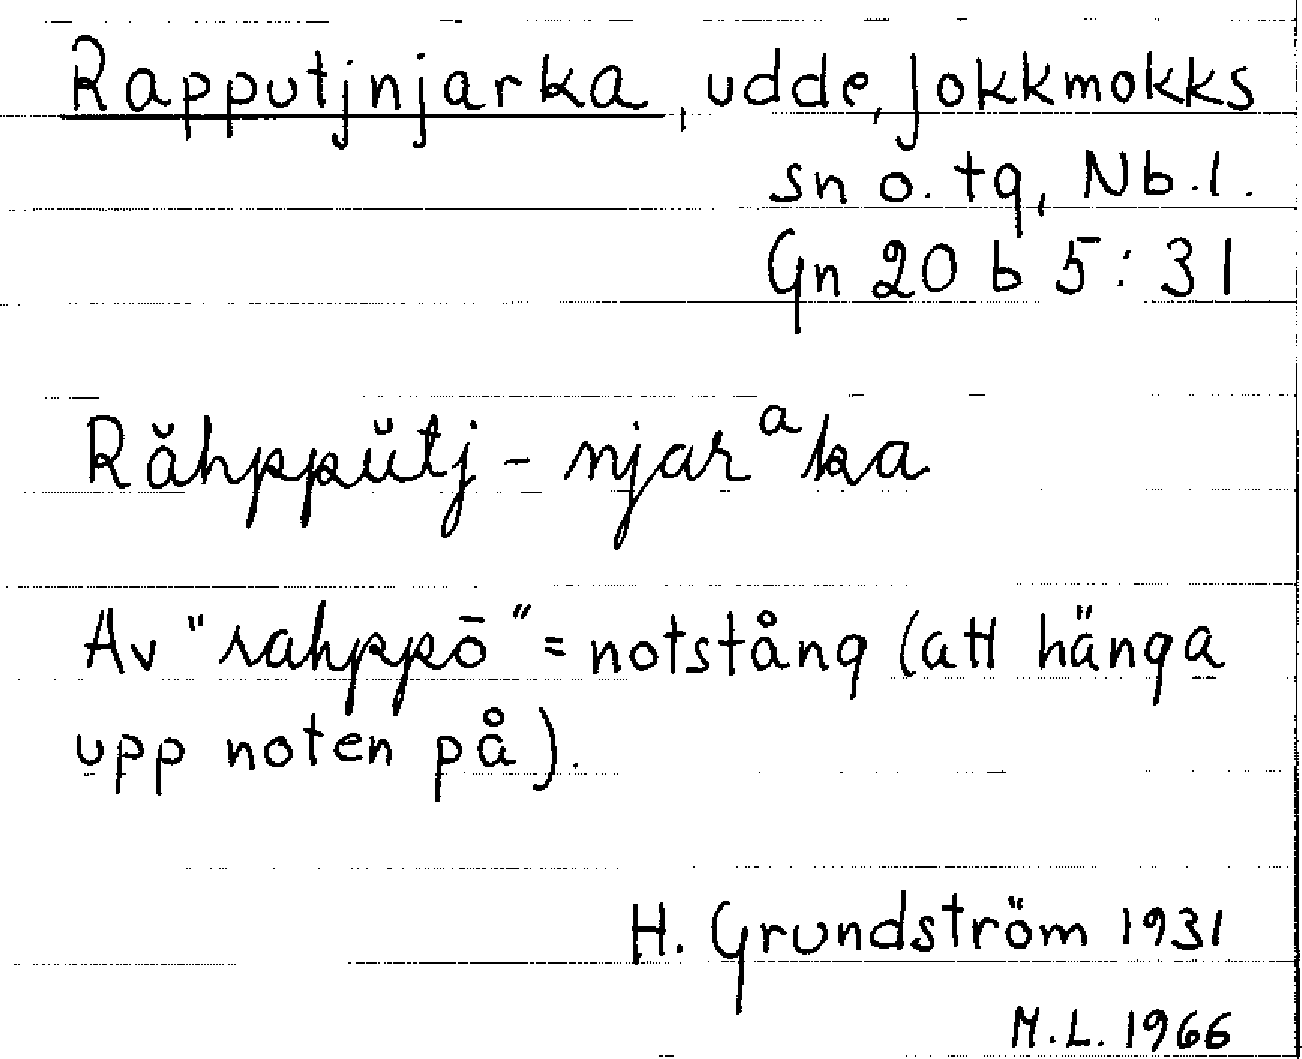 Rapputjnjarka, udde, Jokkmokks
sn o. tg, Nb.l.
Gn 20 b 5:31
Răhppŭtj-njarᵃka
Av "rahppō" = notstång (att hänga
upp noten på).
H. Grundström 1931
M.L. 1966